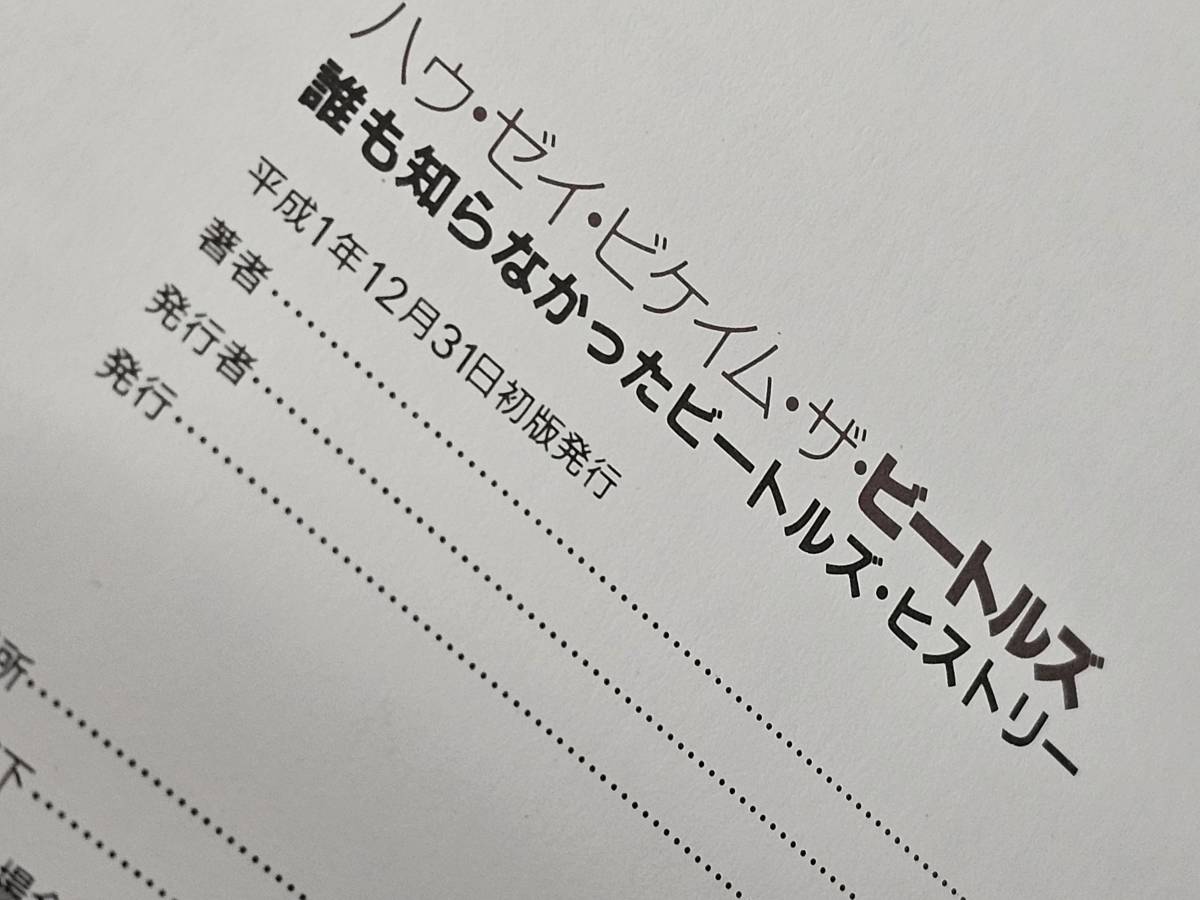 ハウ・ゼイ・ビケイム・ザ・ビートルズ
誰も知らなかったビートルズ・ヒストリー
平成1年12月31日初版発行
著者
発行者
発行
所
下